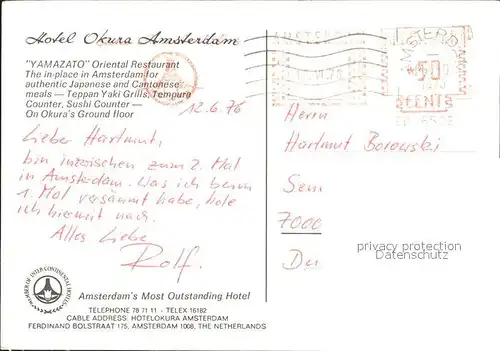 Hotel Okura Amsterdam
"YAMAZATO" Oriental Restaurant
The in-place in Amsterdam for
authentic Japanese and Cantonese
meals — Teppan Yaki Grills, Tempura
Counter, Sushi Counter —
On Okura's Ground floor
12.6.76
Lieber Hartmut,
bin inzwischen zum 2. Mal
in Amsterdam. Was ich beim
1. Mal versäumt habe, hole
ich hiermit nach.
Alles Liebe
Rolf.
AMSTERDAM
50
CENTS
Herrn
Hartmut Borowski
7000
privacy protection
Datenschutz
MEMBER OF INTER-CONTINENTAL HOTELS
Amsterdam's Most Outstanding Hotel
TELEPHONE 78 71 11 - TELEX 16182
CABLE ADDRESS: HOTELOKURA AMSTERDAM
FERDINAND BOLSTRAAT 175, AMSTERDAM 1008, THE NETHERLANDS